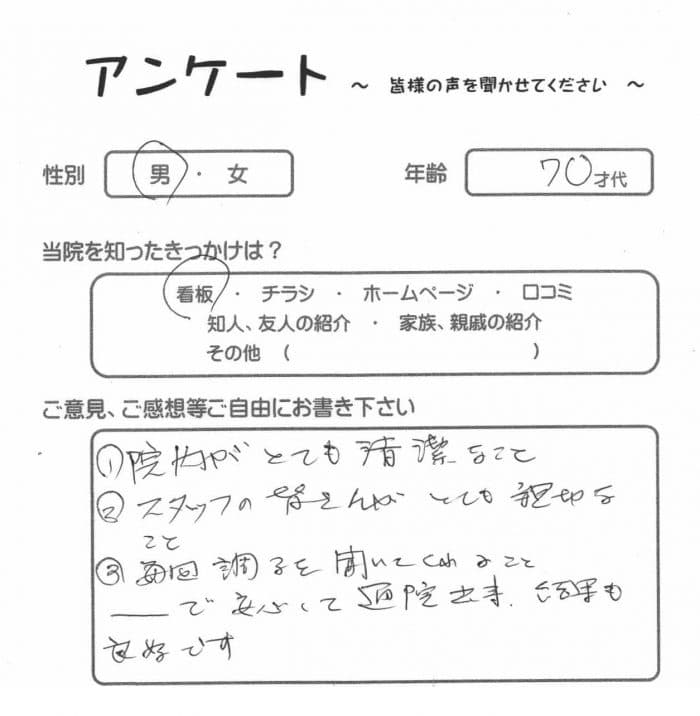 アンケート ～ 皆様の声を聞かせてください ～
性別 男・女 年齢 70才代
当院を知ったきっかけは？
看板 ・ チラシ ・ ホームページ ・ 口コミ
知人、友人の紹介 ・ 家族、親戚の紹介
その他 （ ）
ご意見、ご感想等ご自由にお書き下さい
①院内がとても清潔なこと
②スタッフの皆さんがとても親切な
こと
③毎回調子を聞いてくれること
で安心して通院出来、結果も
良好です